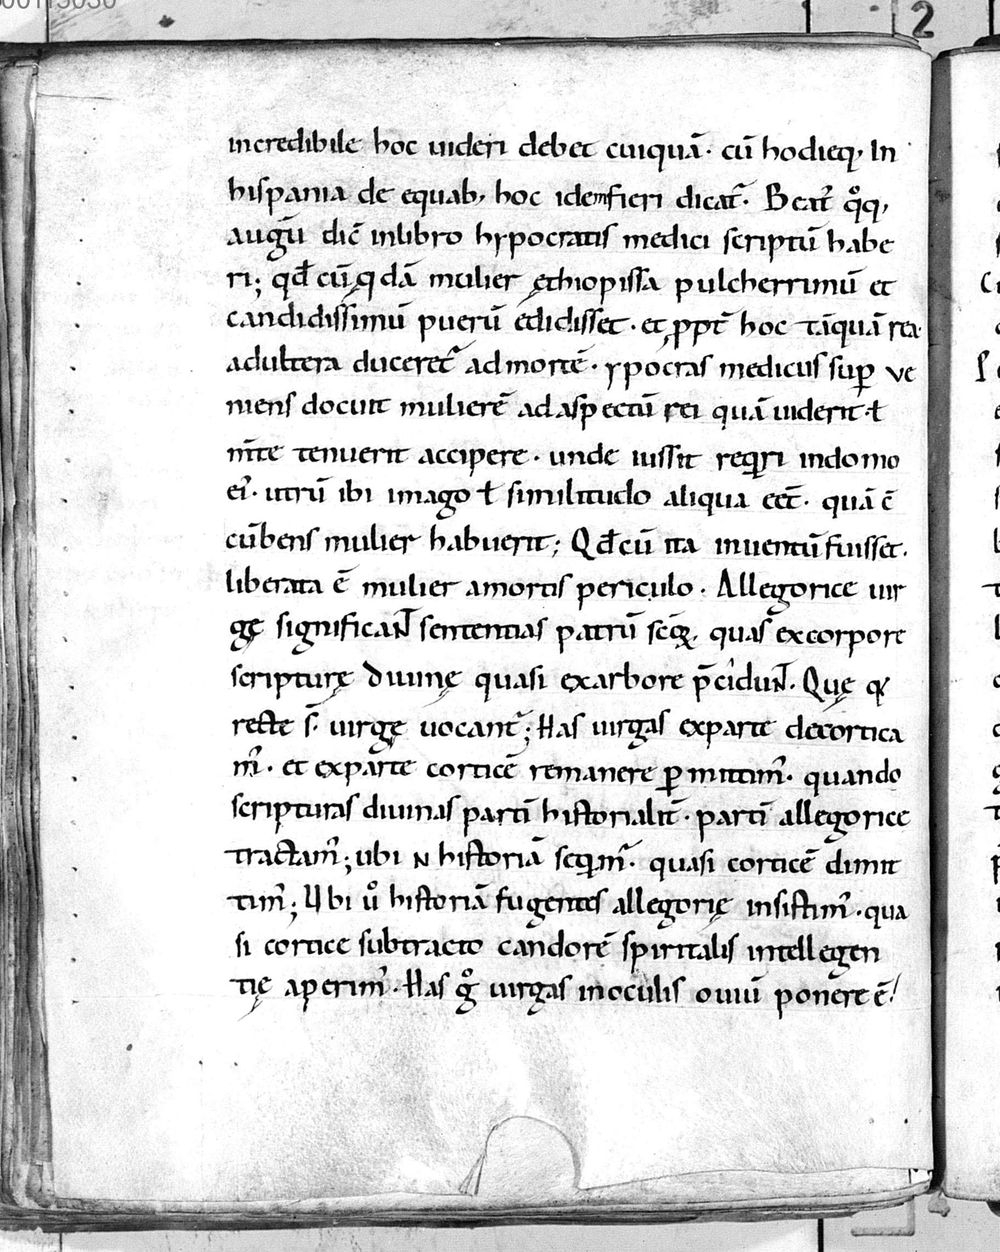 incredibile hoc uideri debet cuiquā· cū hodieq; In
hispania de equab; hoc idem fieri dicat᷑· Beat᷒ q̊q;
augū dic̄ inlibro hypocratis medici scriptū habe
ri; qd̄ cū q̨dā mulier ęthiopissa pulcherrimū et
candidissimū puerū edidisset· et ꝓpt̄ hoc tāquā rea
adultera duceret᷑ ad mortē· ypocras medicus sup̱ ve
niens docuit mulierē ad aspectū rei quā uiderit ł
m̄te tenuerit accipere· unde iussit requiri indomo
ei᷒· utrū ibi imago ł similitudo aliqua eēt· quā c̄
cūbens mulier habuerit; Qd̄ cū ita inuentū fuisset·
liberata ē mulier amortis periculo· Allegorice uir
gę significant̄ sententias patrū scōꝝ, quas excorpore
scripturę diuinę quasi exarbore p̄cidunt̄· Quę q̨
recte s̄· uirgę uocant᷑; Has uirgas exparte decortica
m᷒· et exparte corticē remanere ꝑmittim᷒· quando
scripturas diuinas partī historialit̄· partī allegorice
tractam᷒; ubi n̄ historiā seq̨m᷒· quasi corticē dimit
tim᷒; Ubi ů historiā fugentes allegorię insistim᷒· qua
si cortice subtracto candorē spiritalis intellegen
tię aperim᷒· Has g̊ uirgas inoculis ouiū ponere ē!